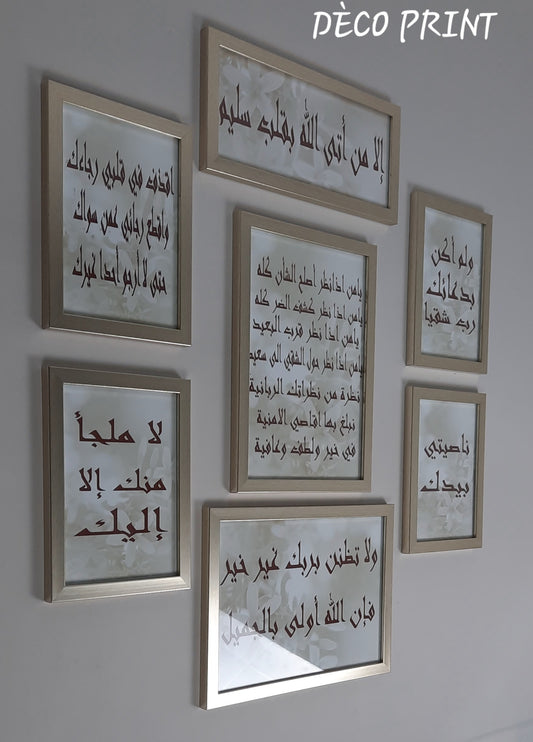 DÈCO PRINT
إلا من أتى الله بقلب سليم
اقذف في قلبي رجاءك
واقطع رجائي عمن سواك
حتى لا أرجو أحدا غيرك
ولو أكن
بدعائك
رب شقيا
يا من اذا نظر أصلح الشأن كله
يا من اذا نظر كشف الضر كله
يا من اذا نظر قرب البعيد
يا من اذا نظر حول الشقي الى سعيد
نظرة من نظراتك الربانية
نبلغ بها أقاصي الامنية
في خير ولطف وعافية
لا ملجأ
منك إلا
إليك
ناصيتي
بيدك
ولا تظنن بربك غير خير
فإن الله أولى بالجميل